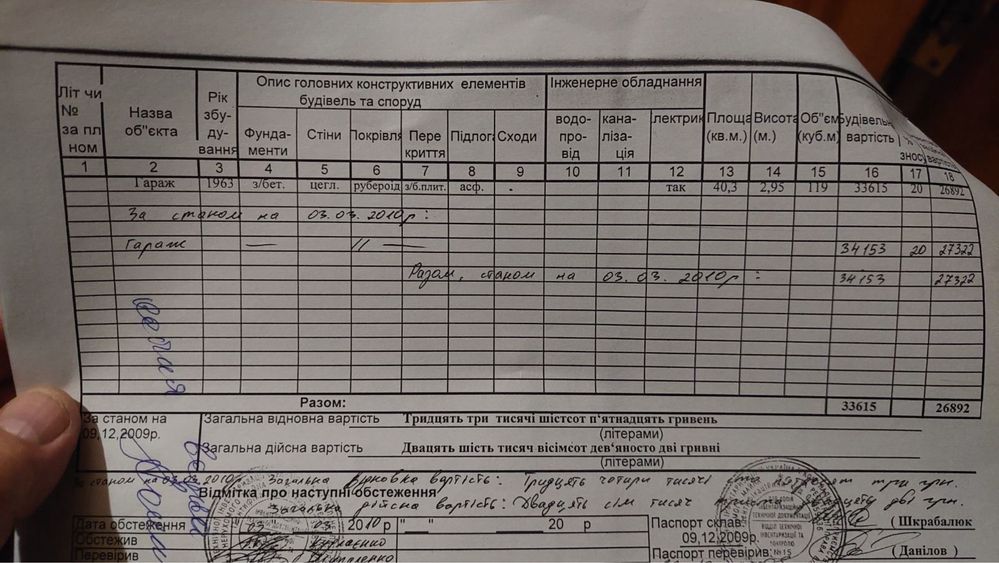 Літ чи № за пл ном
Назва об"єкта
Рік збу- ду- вання
Опис головних конструктивних елементів будівель та споруд
Інженерне обладнання
Площа (кв.м.)
Висота (м.)
Об"єм (куб.м)
Будівельн вартість
% знос
вартість
Фунда- менти
Стіни
Покрівля
Пере криття
Підлога
Сходи
водо- про- від
кана- ліза- ція
лектрик
1 2 3 4 5 6 7 8 9 10 11 12 13 14 15 16 17 18
Гараж 1963 з/бет. цегл. рубероїд з/б.плит. асф. - так 40,3 2,95 119 33615 20 26892
За станом на 03.03.2010р :
Гараж — // — 34153 20 27322
Разом, станом на 03.03.2010р : 34153 27322
Разом: 33615 26892
За станом на 09,12,2009р.
Загальна відновна вартість Тридцять три тисячі шістсот п'ятнадцять гривень
(літерами)
Загальна дійсна вартість Двадцять шість тисяч вісімсот дев'яносто дві гривні
(літерами)
станом на 03.03.2010р Загальна вартість: Тридцять чотири тисячі сто три грн.
Відмітка про наступні обстеження
Загальна дійсна вартість: Двадцять сім тисяч дві грн.
Дата обстеження 03 03 2010 р " " 20 р
Паспорт склав: 09,12,2009р. ( Шкрабалюк
Обстежив
Перевірив
Паспорт перевірив: №15 (Данілов )